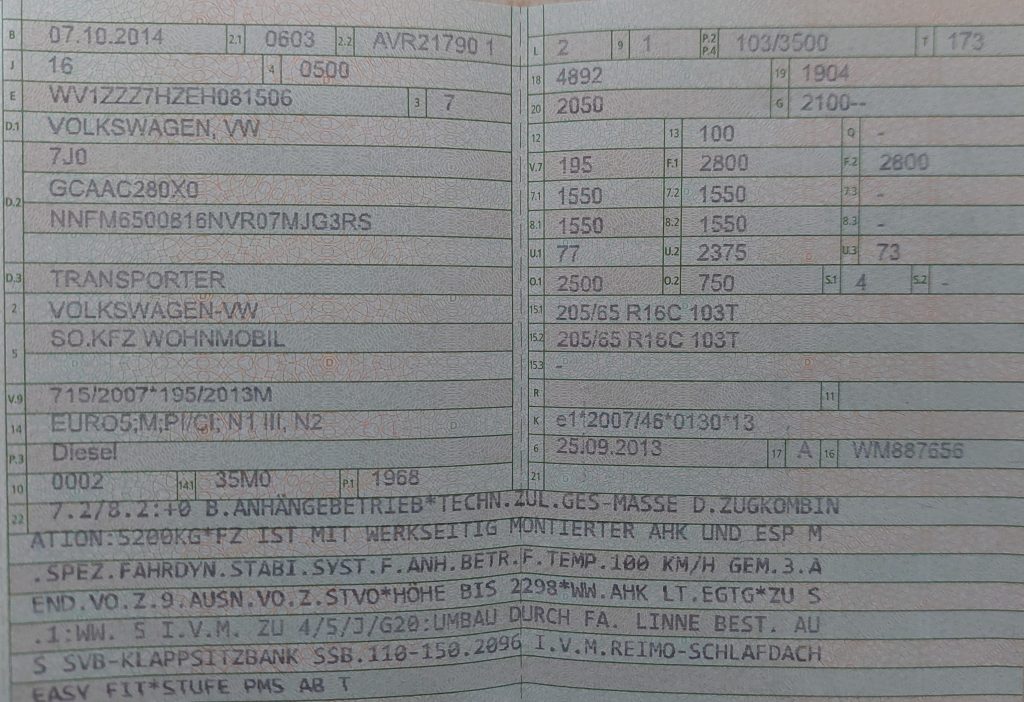 B 07.10.2014 2.1 0603 2.2 AVR21790 1
J 16 4 0500
E WV1ZZZ7HZEH081506 3 7
D.1 VOLKSWAGEN, VW
7J0
D.2 GCAAC280X0
NNFM6500816NVR07MJG3RS
D.3 TRANSPORTER
2 VOLKSWAGEN-VW
5 SO.KFZ WOHNMOBIL
V.9 715/2007*195/2013M
14 EURO5;M;PI/CI; N1 III, N2
P.3 Diesel
10 0002 14.1 35M0 P.1 1968
L 2 9 1 P.2 P.4 103/3500 T 173
18 4892 19 1904
20 2050 G 2100--
12 13 100 Q -
V.7 195 F.1 2800 F.2 2800
7.1 1550 7.2 1550 7.3 -
8.1 1550 8.2 1550 8.3 -
U.1 77 U.2 2375 U.3 73
O.1 2500 O.2 750 S.1 4 S.2 -
15.1 205/65 R16C 103T
15.2 205/65 R16C 103T
15.3 -
R 11
K e1*2007/46*0130*13
6 25.09.2013 17 A 16 WM887656
21
22 7.2/8.2:+0 B.ANHÄNGEBETRIEB*TECHN.ZUL.GES-MASSE D.ZUGKOMBIN
ATION:5200KG*FZ IST MIT WERKSEITIG MONTIERTER AHK UND ESP M
.SPEZ.FAHRDYN.STABI.SYST.F.ANH.BETR.F.TEMP.100 KM/H GEM.3.A
END.VO.Z.9.AUSN.VO.Z.STVO*HÖHE BIS 2298*WW.AHK LT.EGTG*ZU S
.1:WW. 5 I.V.M. ZU 4/5/J/G20:UMBAU DURCH FA. LINNE BEST. AU
S SVB-KLAPPSITZBANK SSB.110-150.2096 I.V.M.REIMO-SCHLAFDACH
EASY FIT*STUFE PM5 AB T